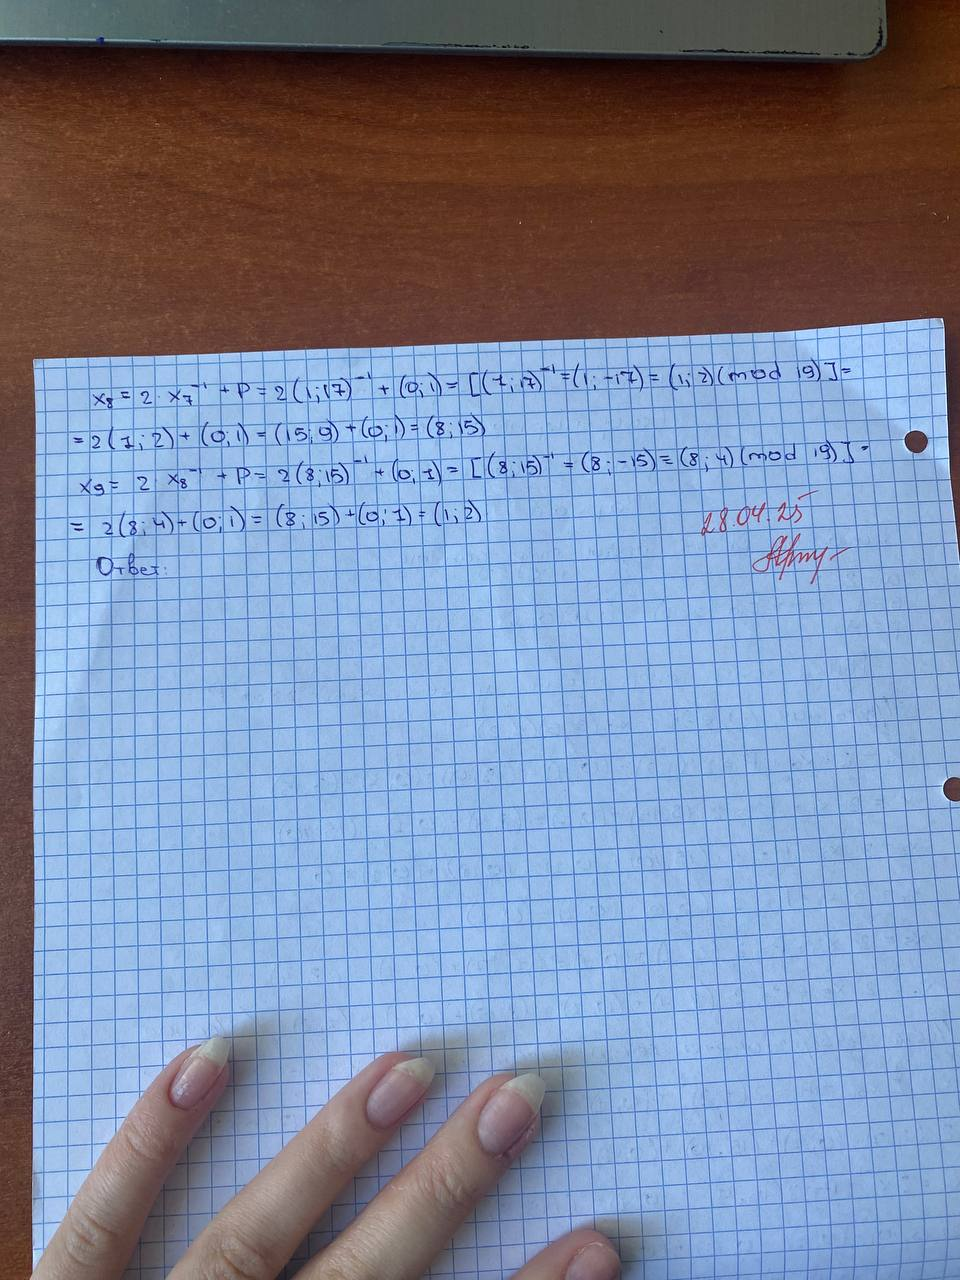 x₈ = 2 · x₇⁻¹ + P = 2(1;17)⁻¹ + (0;1) = [(1;17)⁻¹ = (1;-17) = (1;2)(mod 19)] =
= 2(1;2) + (0;1) = (15;9) + (0;1) = (8;15)
x₉ = 2 x₈⁻¹ + P = 2(8;15)⁻¹ + (0;1) = [(8;15)⁻¹ = (8;-15) = (8;4)(mod 19)] =
= 2(8;4) + (0;1) = (8;15) + (0;1) = (1;2)
28.04.25
Ответ: